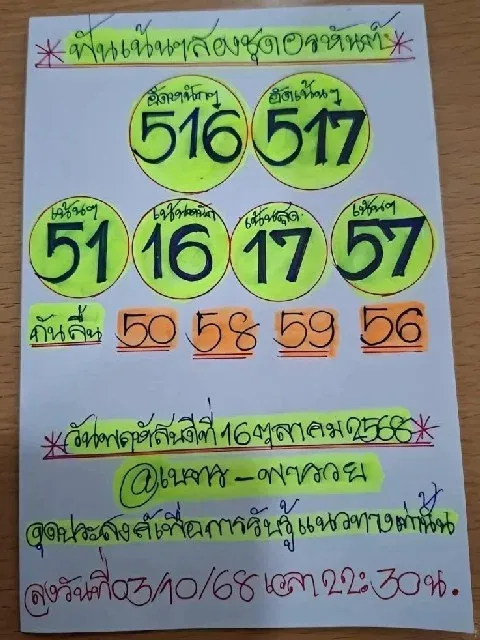 *ฟันเน้นๆสองชุดอรหันต์*
อัดหนักๆ อัดเน้นๆ
516 517
เน้นๆ เน้นหนัก เน้นสุด เน้นๆ
51 16 17 57
กันลื่น 50 58 59 56
*วันพฤหัสบดีที่ 16 ตุลาคม 2568*
พารวย
จุดประสงค์เพื่อการรับรู้แนวทางเท่านั้น
ลงวันที่ 03/10/68 เวลา 22:30 น.